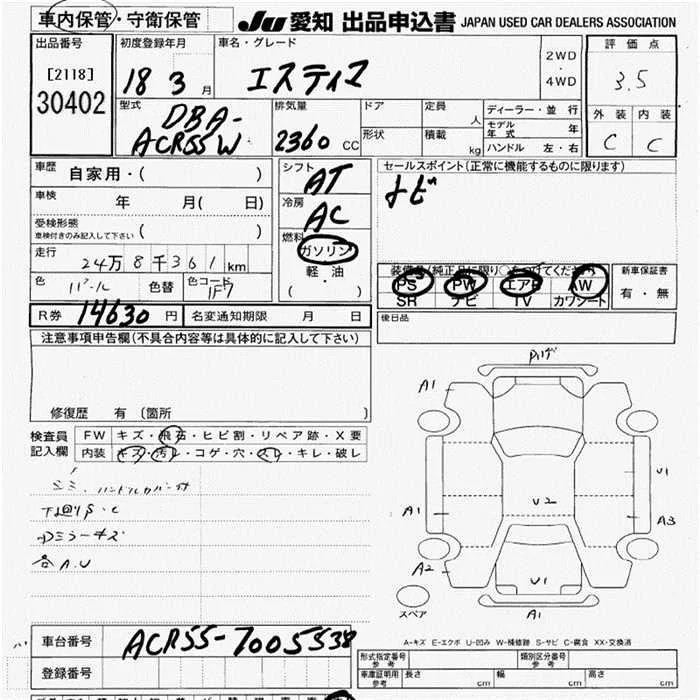 車内保管・守衛保管
JU 愛知 出品申込書 JAPAN USED CAR DEALERS ASSOCIATION
出品番号
[2118]
30402
初度登録年月
18 3 月
車名・グレード
エスティマ
2WD
・
4WD
評価点
3.5
外装 内装
C C
型式
DBA-
ACR55W
排気量
2360 CC
ドア
形状
定員 人
積載 kg
ディーラー・並行
モデル年式 年
ハンドル 左・右
車歴
自家用・( )
車検
年 月( 日)
受検形態
車検付きのみ記入して下さい ( )
走行
24万8千361km
色
パール
色替
色コード
1F7
シフト
AT
冷房
AC
燃料
ガソリン
軽・油
( )
セールスポイント(正常に機能するものに限ります)
ナビ
装備品(純正品に限り○をつけてください)
PS PW エアB AW
SR ナビ TV カワシート
新車保証書
有・無
R券 14630 円
名変通知期限 月 日
後日品
注意事項申告欄(不具合内容等は具体的に記入して下さい)
修復歴 有 (箇所 )
検査員
記入欄
FW キズ・飛石・ヒビ割・リペア跡・X要
内装 キズ・汚レ・コゲ・穴・スレ・キレ・破レ
シミ、ハンドルカバー付
下回りS・C
ロミラーキズ
各A.U
A1
A1
A2
U2
U1
U1
A3
A1
スペア
A-キズ E-エクボ U-凹み W-補修跡 S-サビ C-腐食 XX-交換済
車台番号
ACR55-7005538
登録番号
形式指定番号
参考
類別区分番号
参考
車庫証明用
参考
長さ cm 幅 cm 高さ cm